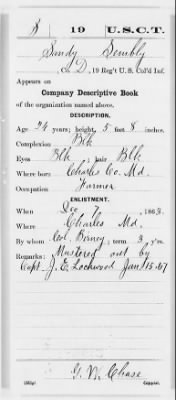 S 19 U.S.C.T.
Sandy Sembly
Co. D, 19 Reg't U. S. Col'd Inf.
Appears on
Company Descriptive Book
of the organization named above.
DESCRIPTION.
Age 24 years; height, 5 feet 8 inches.
Complexion Blk
Eyes Blk; hair Blk
Where born Charles Co. Md.
Occupation Farmer
ENLISTMENT.
When Dec 7, 1863.
Where Charles Md.
By whom Col. Birney; term 3 y'rs.
Remarks: Mustered out by
Capt. J. E. Lockwood Jan 15, 67
G. W. Chase
Copyist.